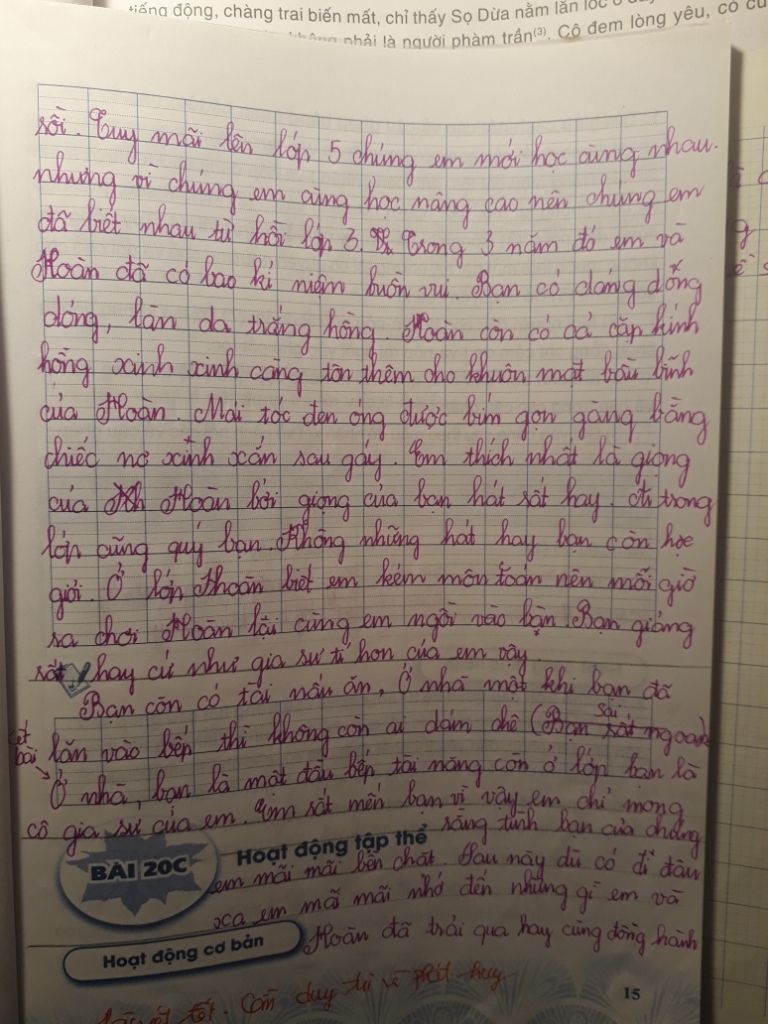 tiếng động, chàng trai biến mất, chỉ thấy Sọ Dừa nằm lăn lóc ở
không phải là người phàm trần(3). Cô đem lòng yêu, có
rồi. Tuy mãi lên lớp 5 chúng em mới học cùng nhau.
nhưng vì chúng em cùng học nâng cao nên chúng em
đã biết nhau từ hồi lớp 3. Trong 3 năm đó em và
Hoàn đã có bao kỉ niệm buồn vui. Bạn có dáng dỏng
dỏng, làn da trắng hồng. Hoàn còn có cả cặp kính
hồng xinh xinh càng tôn thêm cho khuôn mặt bầu bĩnh
của Hoàn. Mái tóc đen óng được bím gọn gàng bằng
chiếc nơ xinh xắn sau gáy. Em thích nhất là giọng
của Hoàn bởi giọng của bạn hát rất hay. Ai trong
lớp cũng quý bạn. Không những hát hay bạn còn học
giỏi. Ở lớp Hoàn biết em kém môn toán nên mỗi giờ
ra chơi Hoàn lại cùng em ngồi vào bàn Bạn giảng
rất hay cứ như gia sư tí hon của em vậy.
Bạn còn có tài nấu ăn, Ở nhà một khi bạn đã
lăn vào bếp thì không còn ai dám chê (Bạn rất ngoan)
sài
kết bài
Ở nhà, bạn là một đầu bếp tài năng còn ở lớp bạn là
cô gia sư của em. Em rất mến bạn vì vậy em chỉ mong
Hoạt động tập thể rằng tình bạn của chúng
BÀI 20C
em mãi mãi bền chặt. Sau này dù có đi đâu
xa em mãi mãi nhớ đến những gì em và
Hoạt động cơ bản
Hoàn đã trải qua hay cùng đồng hành
tốt. Cần duy trì và phát huy
15